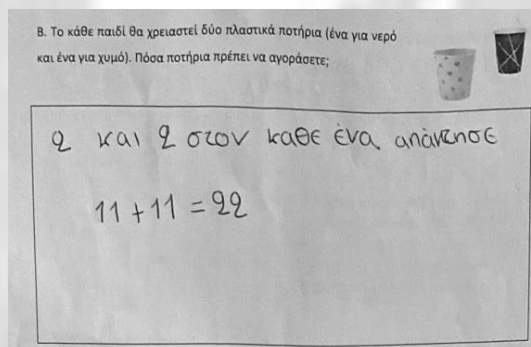 Β. Το κάθε παιδί θα χρειαστεί δύο πλαστικά ποτήρια (ένα για νερό
και ένα για χυμό). Πόσα ποτήρια πρέπει να αγοράσετε;
2 και 2 στον καθε ένα απάντησε
11 + 11 = 22